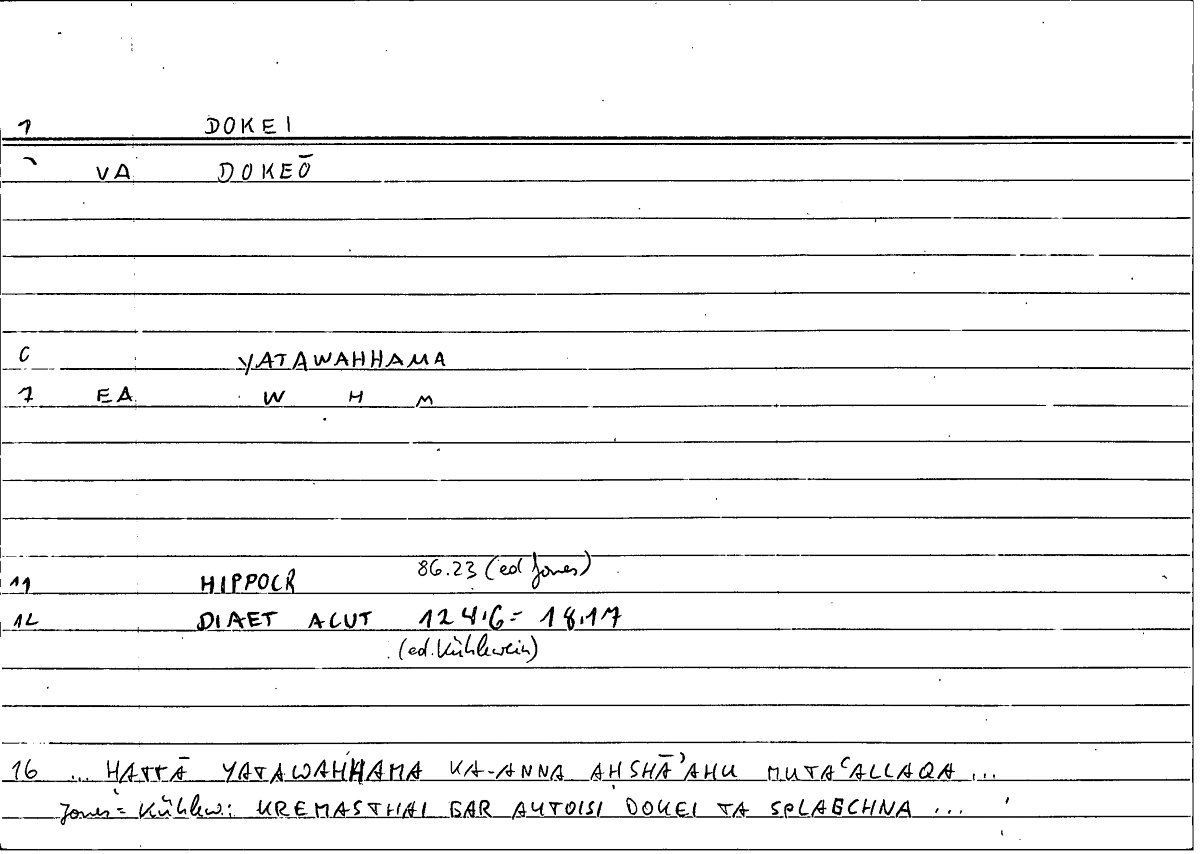 1 DOKEI
VA DOKEŌ
6 YATAWAHHAMA
7 EA W H M
86.23 (ed Jones)
11 HIPPOCR
12 DIAET ACUT 124.6 = 18.17
(ed. Kühlewein)
16 ... HATTĀ YATAWAHHAMA KA-ANNA AHSHĀ'AHU MUTAʿALLAQA ...
Jones = Kühlew: KREMASTHAI GAR AUTOISI DOKEI TA SPLAGCHNA ...